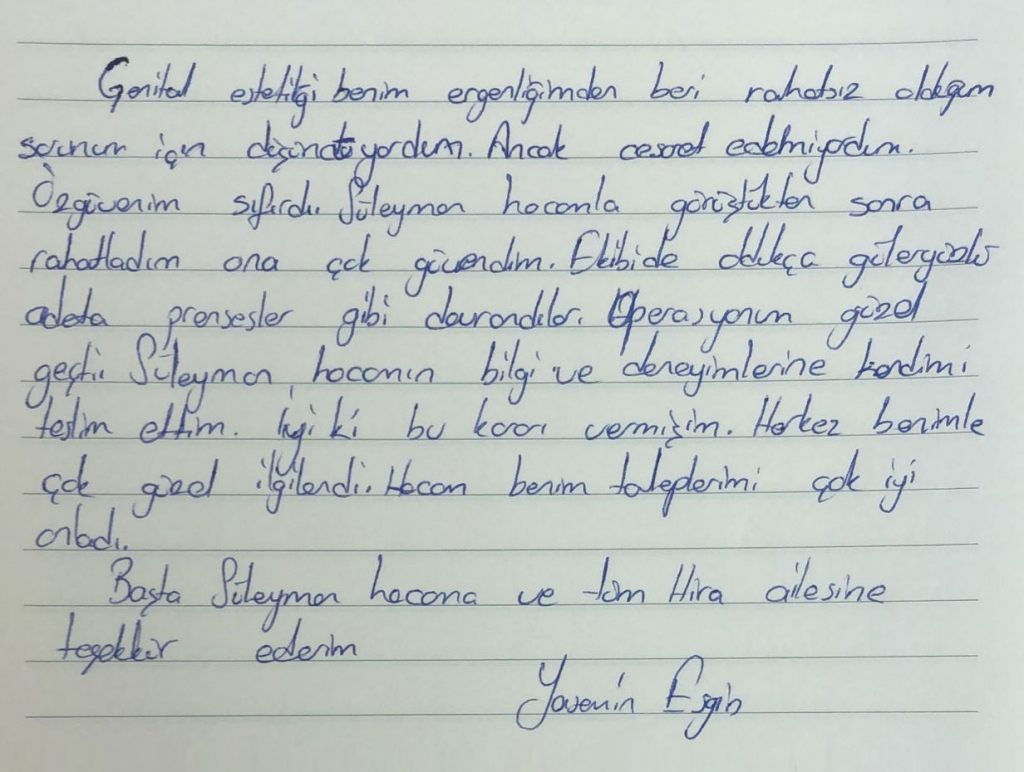 Genital estetiği benim ergenliğimden beri rahatsız olduğum
sorunum için düşünüyordum. Ancak cesaret edebmiyodum.
Özgüvenim sıfırdı. Süleyman hocamla görüştükten sonra
rahatladım ona çok güvendim. Ekibide oldukça güleryüzlü
adeta prensesler gibi davrandılar. Operasyonum güzel
geçti. Süleyman hocanın bilgi ve deneyimlerine kendimi
teslim ettim. İyi ki bu kararı vermişim. Herkez benimle
çok güzel ilgilendi. Hocam benim taleplerimi çok iyi
anladı.
Başta Süleyman hocama ve tüm Hira ailesine
teşekkür ederim